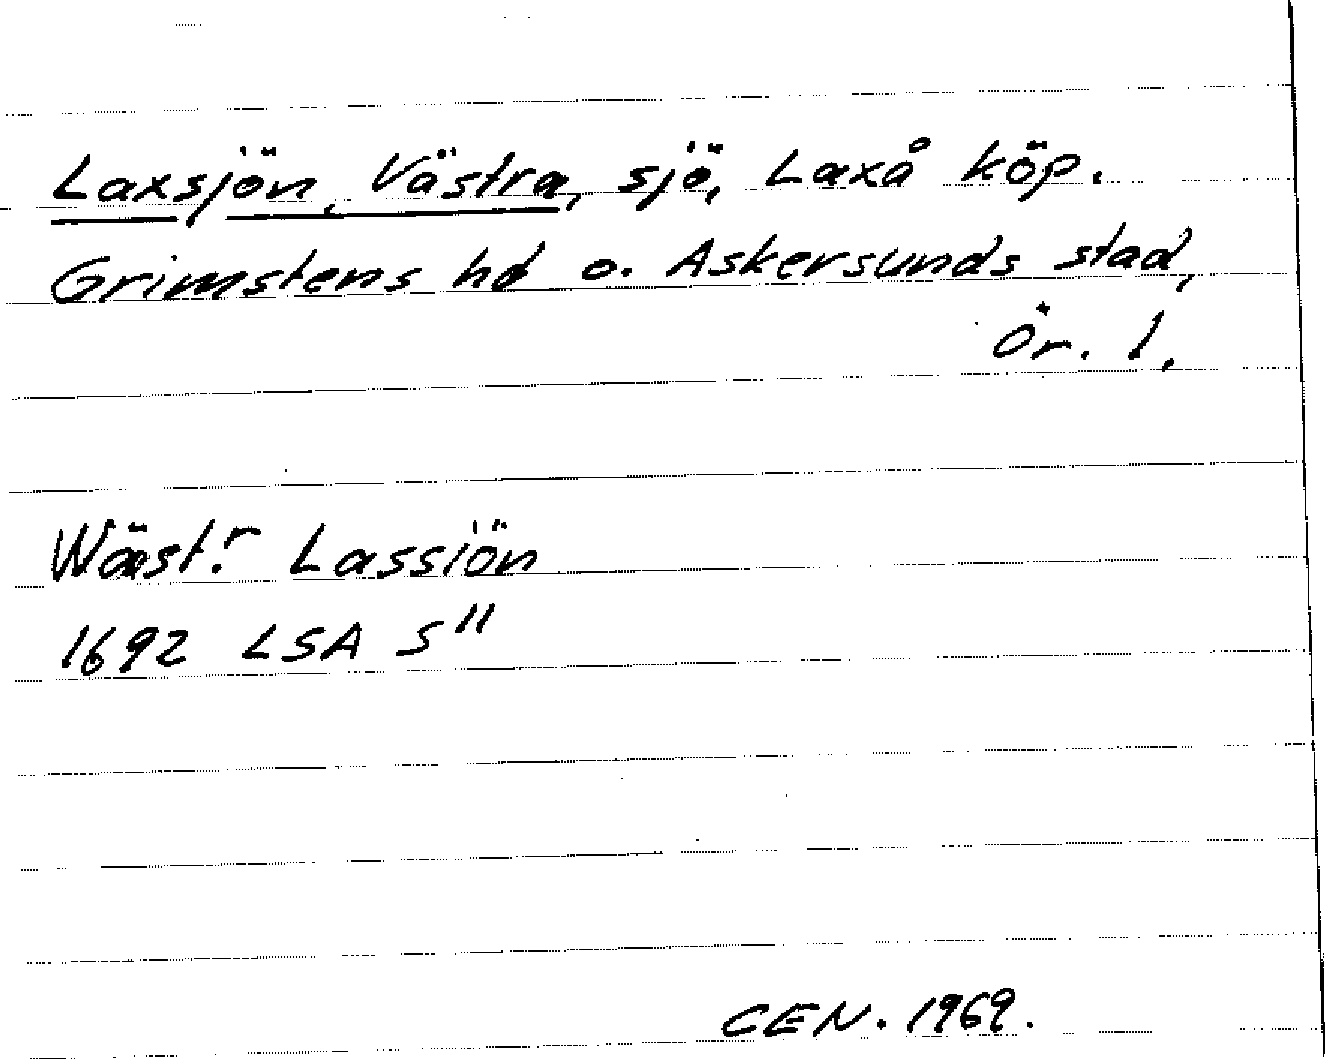 Laxsjön, Västra, sjö, Laxå köp.
Grimstens hd o. Askersunds stad,
Ör. l.
Wäst.r Lassiön
1692 LSA S11
CEN. 1969.